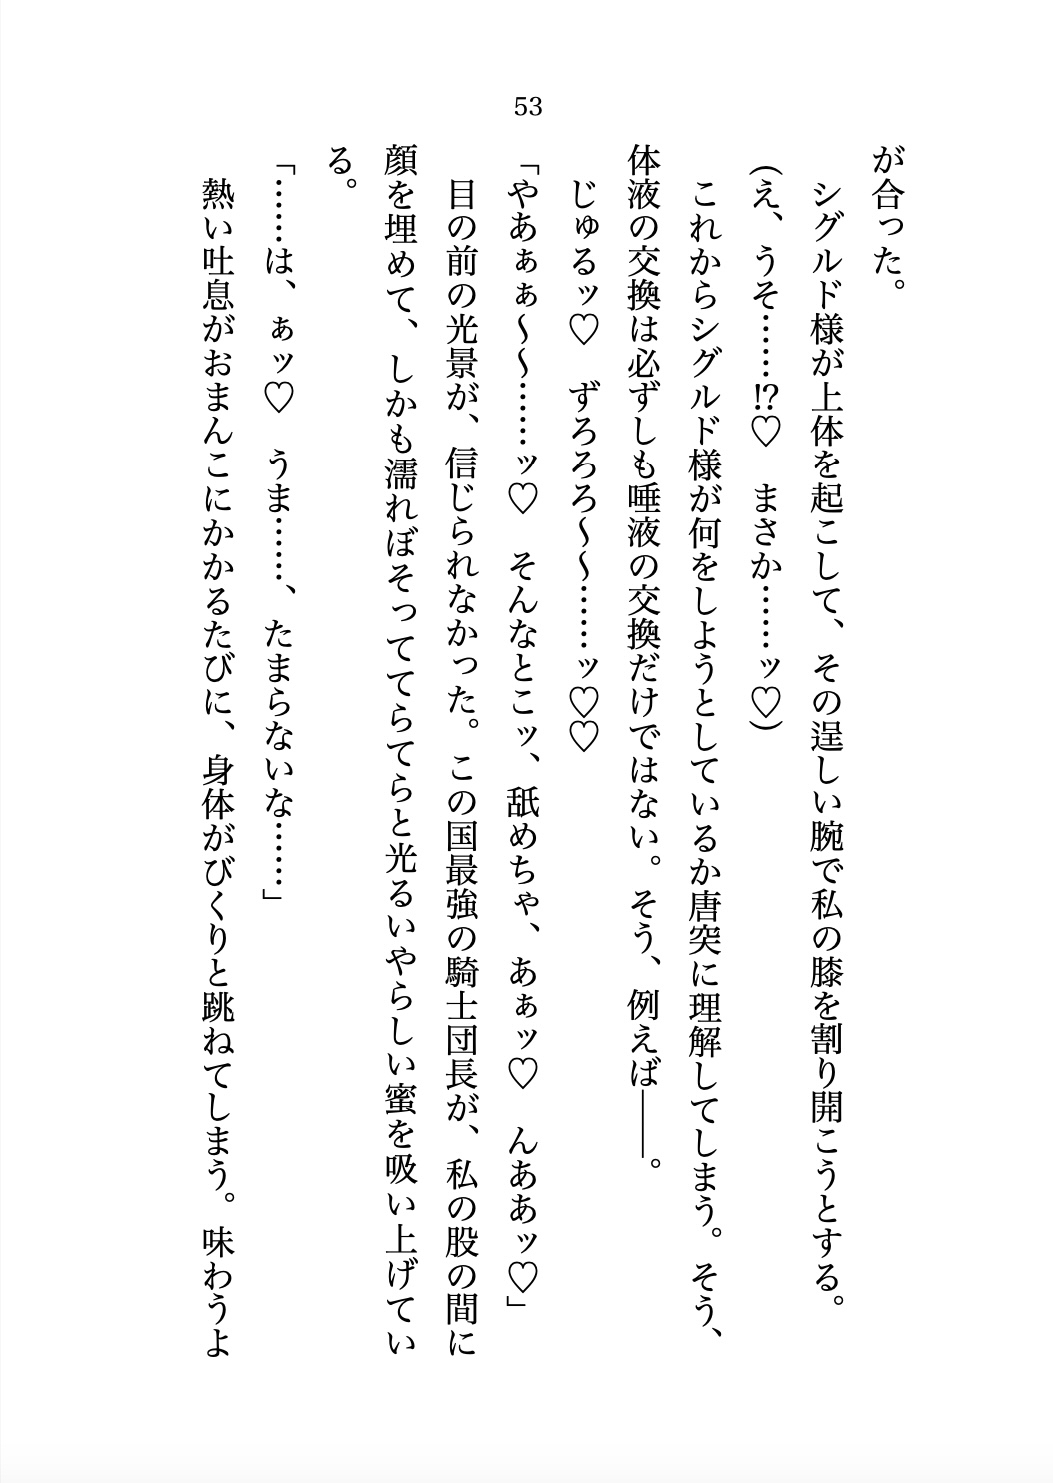 53
が合った。
　シグルド様が上体を起こして、その逞しい腕で私の膝を割り開こうとする。
（え、うそ……!?♡　まさか……ッ♡）
　これからシグルド様が何をしようとしているか唐突に理解してしまう。そう、
体液の交換は必ずしも唾液の交換だけではない。そう、例えば――。
　じゅるッ♡　ずろろろ〜〜……ッ♡♡
「やあぁぁ〜〜……ッ♡　そんなとこッ、舐めちゃ、あぁッ♡　んああッ♡」
　目の前の光景が、信じられなかった。この国最強の騎士団長が、私の股の間に
顔を埋めて、しかも濡れぼそっててらてらと光るいやらしい蜜を吸い上げてい
る。
「……は、ぁッ♡　うま……、たまらないな……」
　熱い吐息がおまんこにかかるたびに、身体がびくりと跳ねてしまう。味わうよ